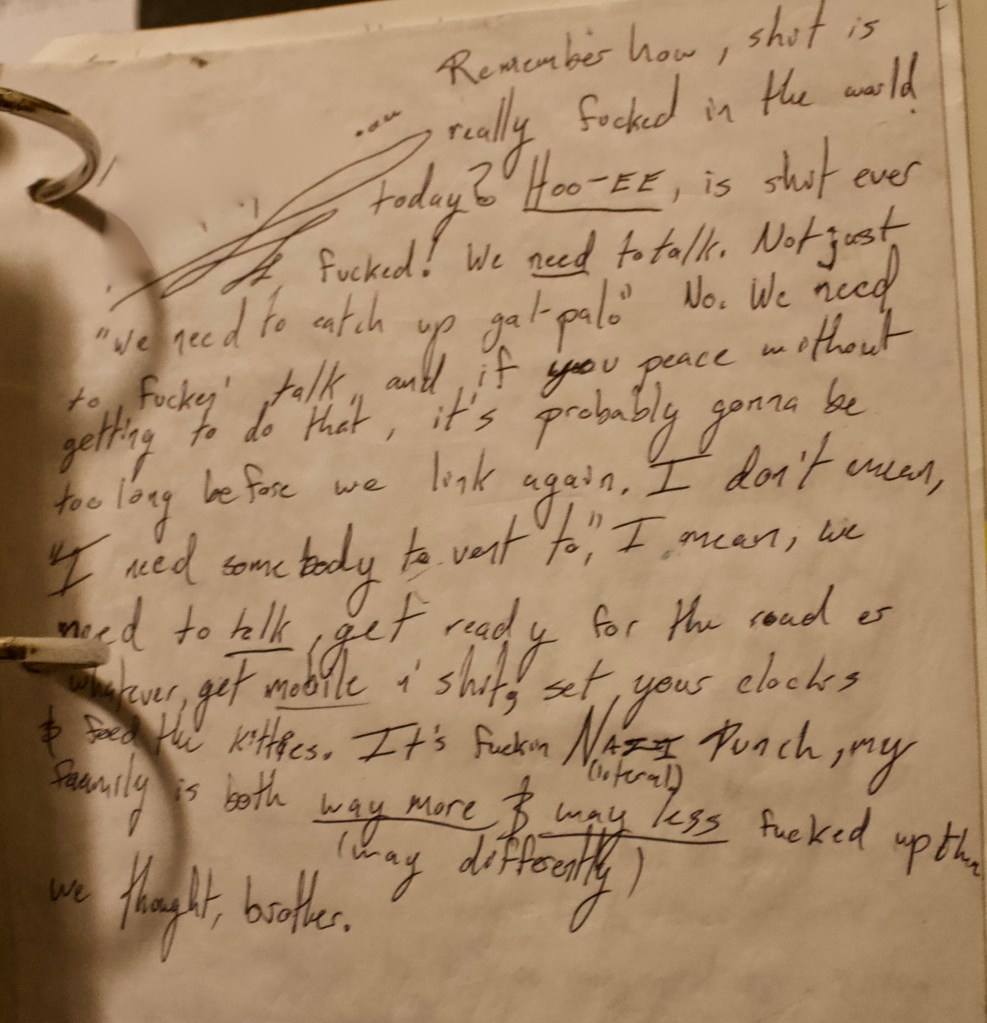 Remember how, shit is
... really fucked in the world
today? HOO-EE, is shit ever
fucked! We need to talk. Not just
"we need to catch up gal-pal." No. We need
to fucken' talk, and if you peace without
getting to do that, it's probably gonna be
too long before we link again. I don't mean,
"I need somebody to vent to," I mean, we
need to talk, get ready for the road or
whatever, get mobile n' shit, set your clocks
& feed the kitties. It's fuckin NAZI Punch, my
(literal)
faamily is both way more & way less fucked up than
(way differently)
we thought, brother.